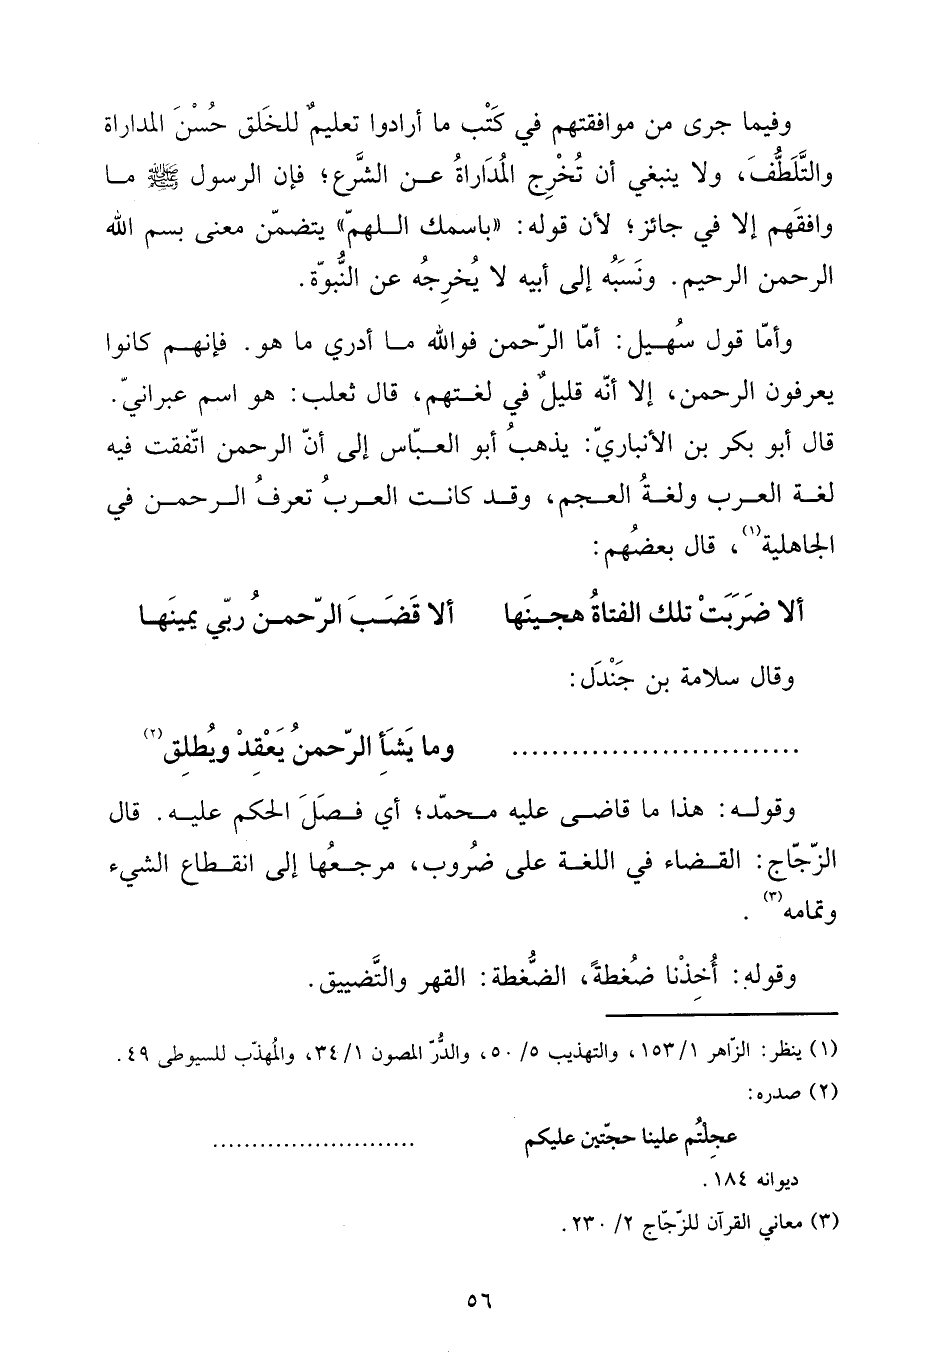 وفيما جرى من موافقتهم في كَتْب ما أرادوا تعليمٌ للخَلق حُسْنَ المداراة
والتَّلَطُّفَ، ولا ينبغي أن تُخْرِج المُدَاراةُ عن الشَّرع؛ فإن الرسول ﷺ ما
وافقَهم إلا في جائز؛ لأن قوله: «باسمك اللهمّ» يتضمّن معنى بسم الله
الرحمن الرحيم. ونَسَبُه إلى أبيه لا يُخرِجُه عن النُّبوّة.
وأمّا قول سُهيل: أمّا الرّحمن فوالله ما أدري ما هو. فإنهم كانوا
يعرفون الرحمن، إلا أنّه قليلٌ في لغتهم، قال ثعلب: هو اسم عبرانيّ.
قال أبو بكر بن الأنباريّ: يذهبُ أبو العبّاس إلى أنّ الرحمن اتّفقت فيه
لغة العرب ولغةُ العجم، وقد كانت العربُ تعرفُ الرحمن في
الجاهلية(١)، قال بعضُهم:
ألا ضَرَبَتْ تلك الفتاةُ هجينَها ألا قَضَبَ الرّحمنُ ربّي يمينَها
وقال سلامة بن جَنْدَل:
............................ وما يَشَأِ الرّحمنُ يَعْقِدْ ويُطلِقِ(٢)
وقوله: هذا ما قاضى عليه محمّد؛ أي فصَلَ الحكم عليه. قال
الزّجّاج: القضاء في اللغة على ضُروب، مرجعُها إلى انقطاع الشيء
وتمامه(٣).
وقوله: أُخِذْنا ضُغطةً، الضُّغطة: القهر والتَّضييق.
(١) ينظر: الزّاهر ١/ ١٥٣، والتهذيب ٥/ ٥٠، والدُّرّ المصون ١/ ٣٤، والمُهذّب للسيوطى ٤٩.
(٢) صدره:
عجِلْتُم علينا حجتّين عليكم .........................
ديوانه ١٨٤.
(٣) معاني القرآن للزّجّاج ٢/ ٢٣٠.
٥٦